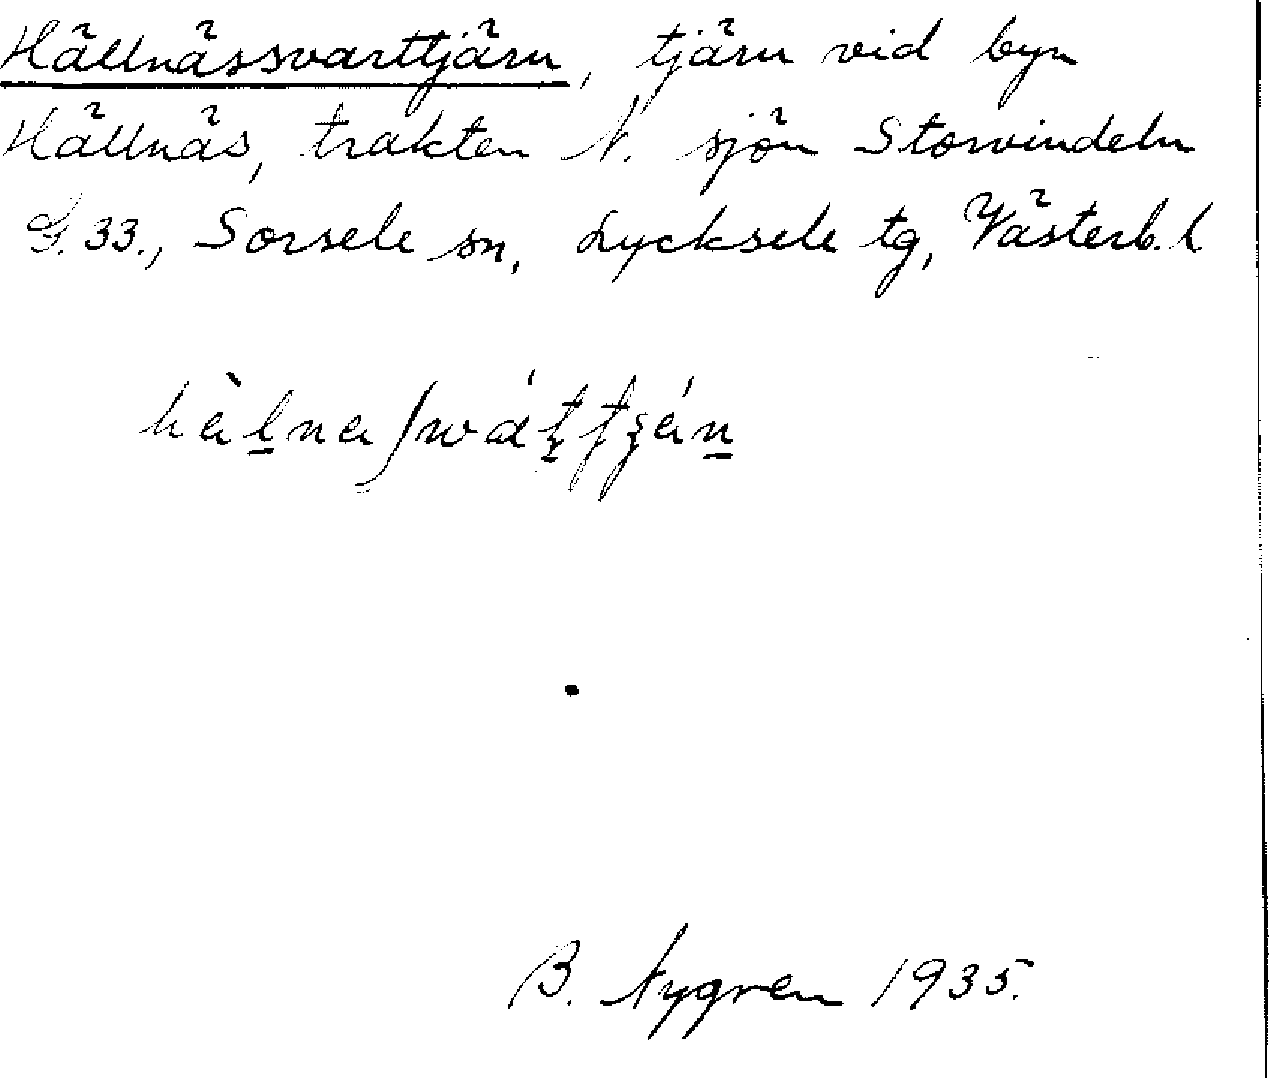 Hällnässvarttjärn, tjärn vid byn
Hällnäs, trakten N. sjön Storvindeln
G. 33., Sorsele sn, Lycksele tg, Västerb. l.
B. Nygren 1935.